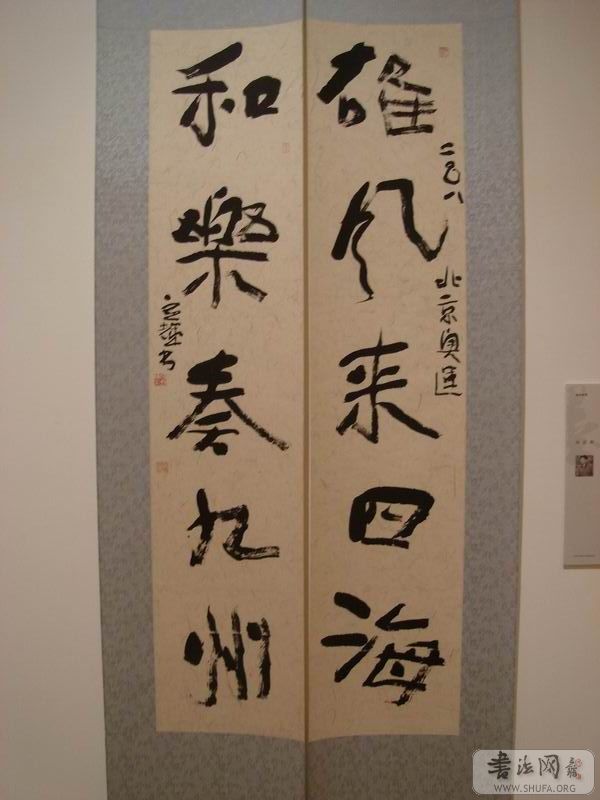 雄风来四海
二〇〇八北京奥运
和樂奏九州
書法网
WWW.SHUFA.ORG